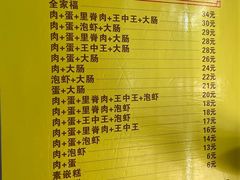 全家福 34元
肉+蛋+里脊肉+王中王+大肠 30元
肉+蛋+泡虾+大肠 29元
肉+蛋+里脊肉+大肠 28元
肉+蛋+王中王+大肠 28元
肉+蛋+大肠 26元
肉+大肠 24元
泡虾+大肠 22元
蛋+大肠 21元
肉+蛋+里脊肉+王中王+泡虾 20元
肉+蛋+里脊肉+泡虾 18元
肉+蛋+王中王+泡虾 18元
肉+蛋+里脊肉+王中王 17元
肉+蛋+泡虾 16元
肉+泡虾 14元
肉+蛋 13元
素嵌糕 6元
6元